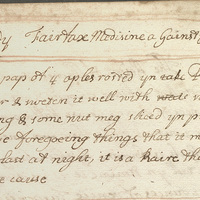 Fairfax Medisine a Gainst
pap of 4 aples rosted yn eate
& sweten it well with
& some nut meg sliced yn p
foregoeing things that it m
last at night, it is a Raire th
cause